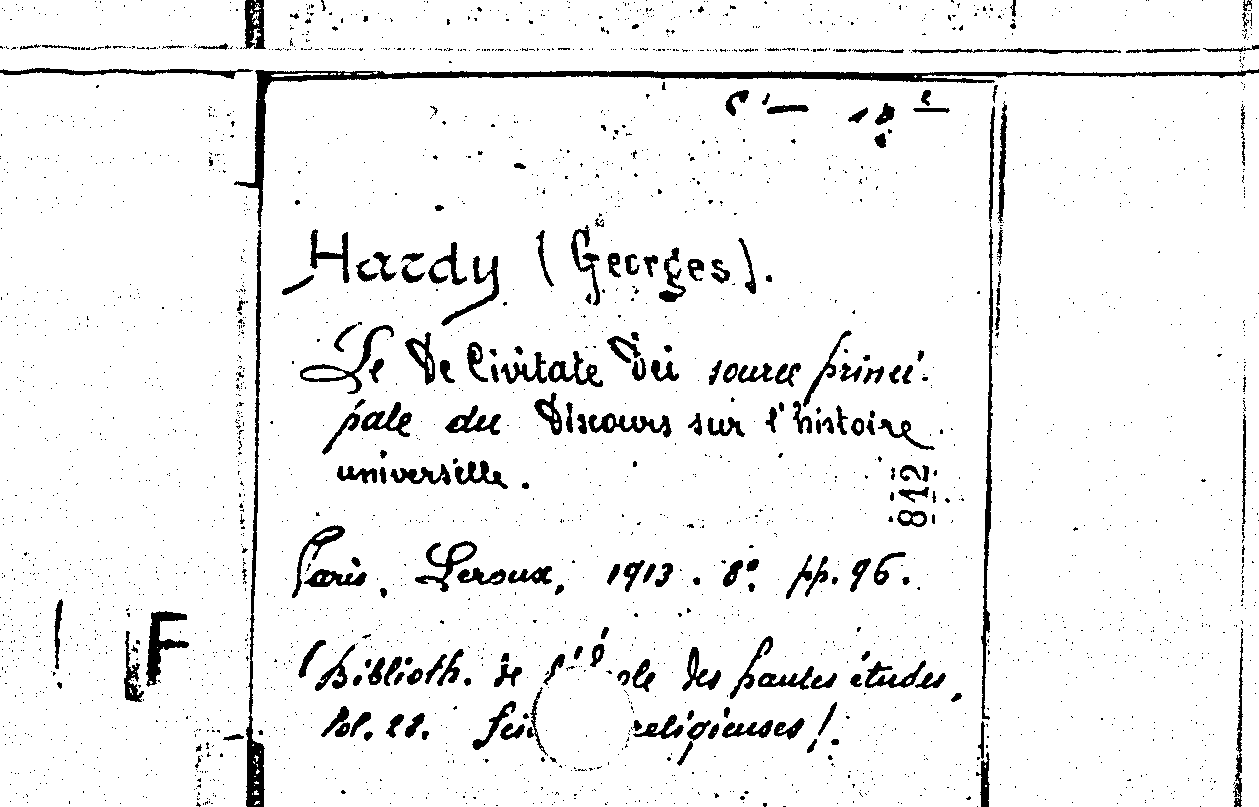 Hardy (Georges).
Le De Civitate Dei source princi-
pale du Discours sur l'histoire
universelle.
812
Paris, Leroux, 1913. 8°. pp. 96.
(Biblioth. de des hautes études,
religieuses).
F